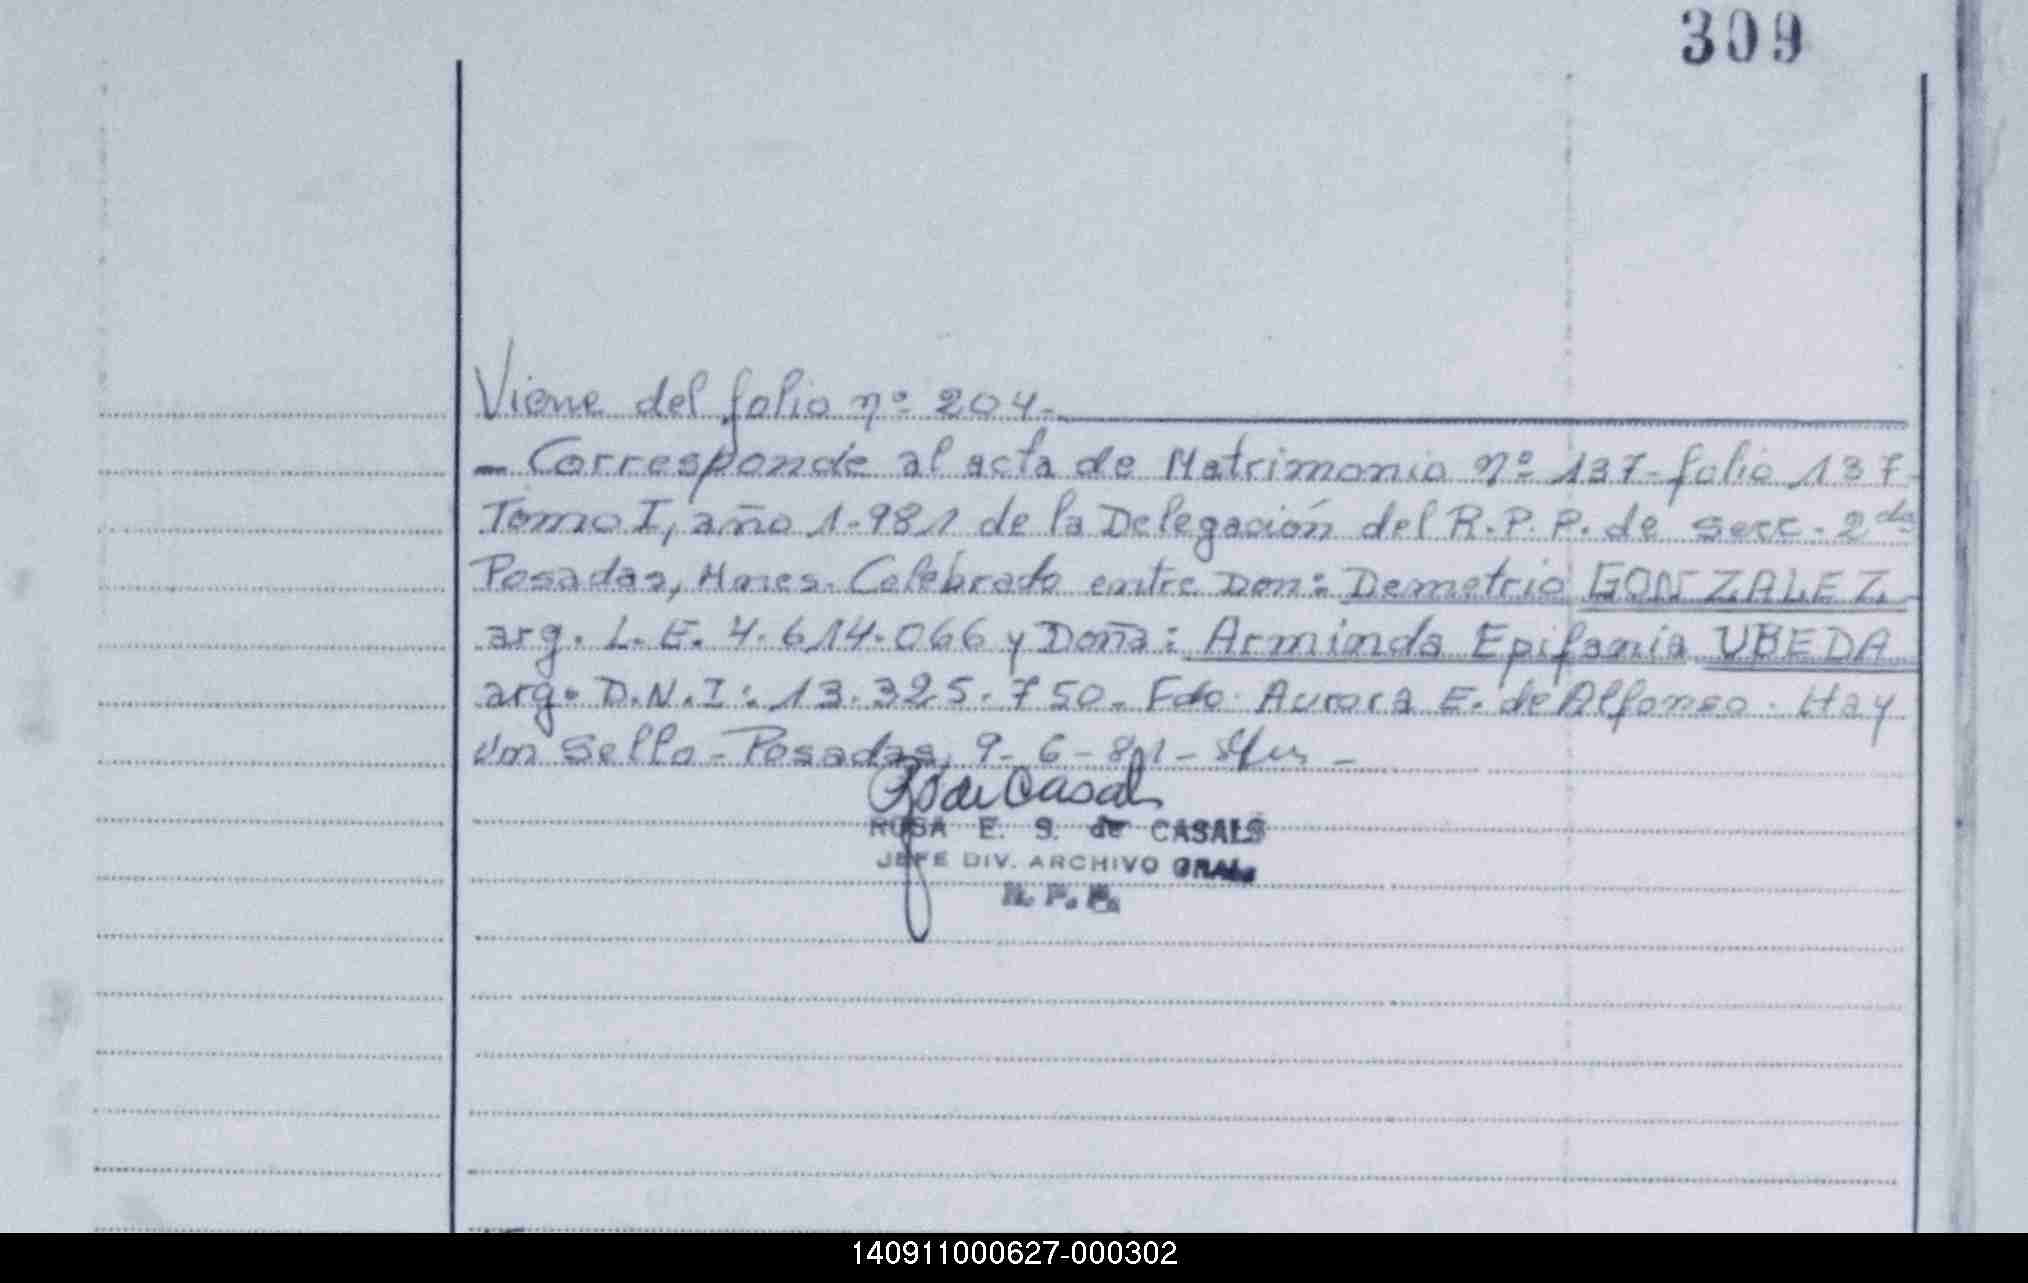 309
Viene del folio nº 204.-
- Corresponde al acta de Matrimonio nº 137- folio 137-
Tomo I, año 1.981 de la Delegación del R.P.P. de secc. 2da
Posadas, Mnes. Celebrado entre Don: Demetrio GONZALEZ
arg. L.E. 4.614.066 y Doña: Arminda Epifania UBEDA
arg. D.N.I: 13.325.750. Fdo. Aurora E. de Alfonso. Hay
un sello - Posadas, 9-6-81-
ROSA E. S. de CASALS
JEFE DIV. ARCHIVO GRAL.
R. P. P.
140911000627-000302